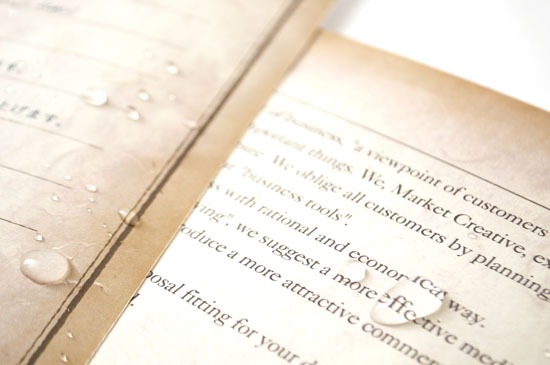 上げます。
of business, "a viewpoint of customers
important things. We, Market Creative, ex
We oblige all customers by planning
"business tools".
with rational and econor ical way.
", we suggest a more effective medi
oduce a more attractive commer
posal fitting for your d